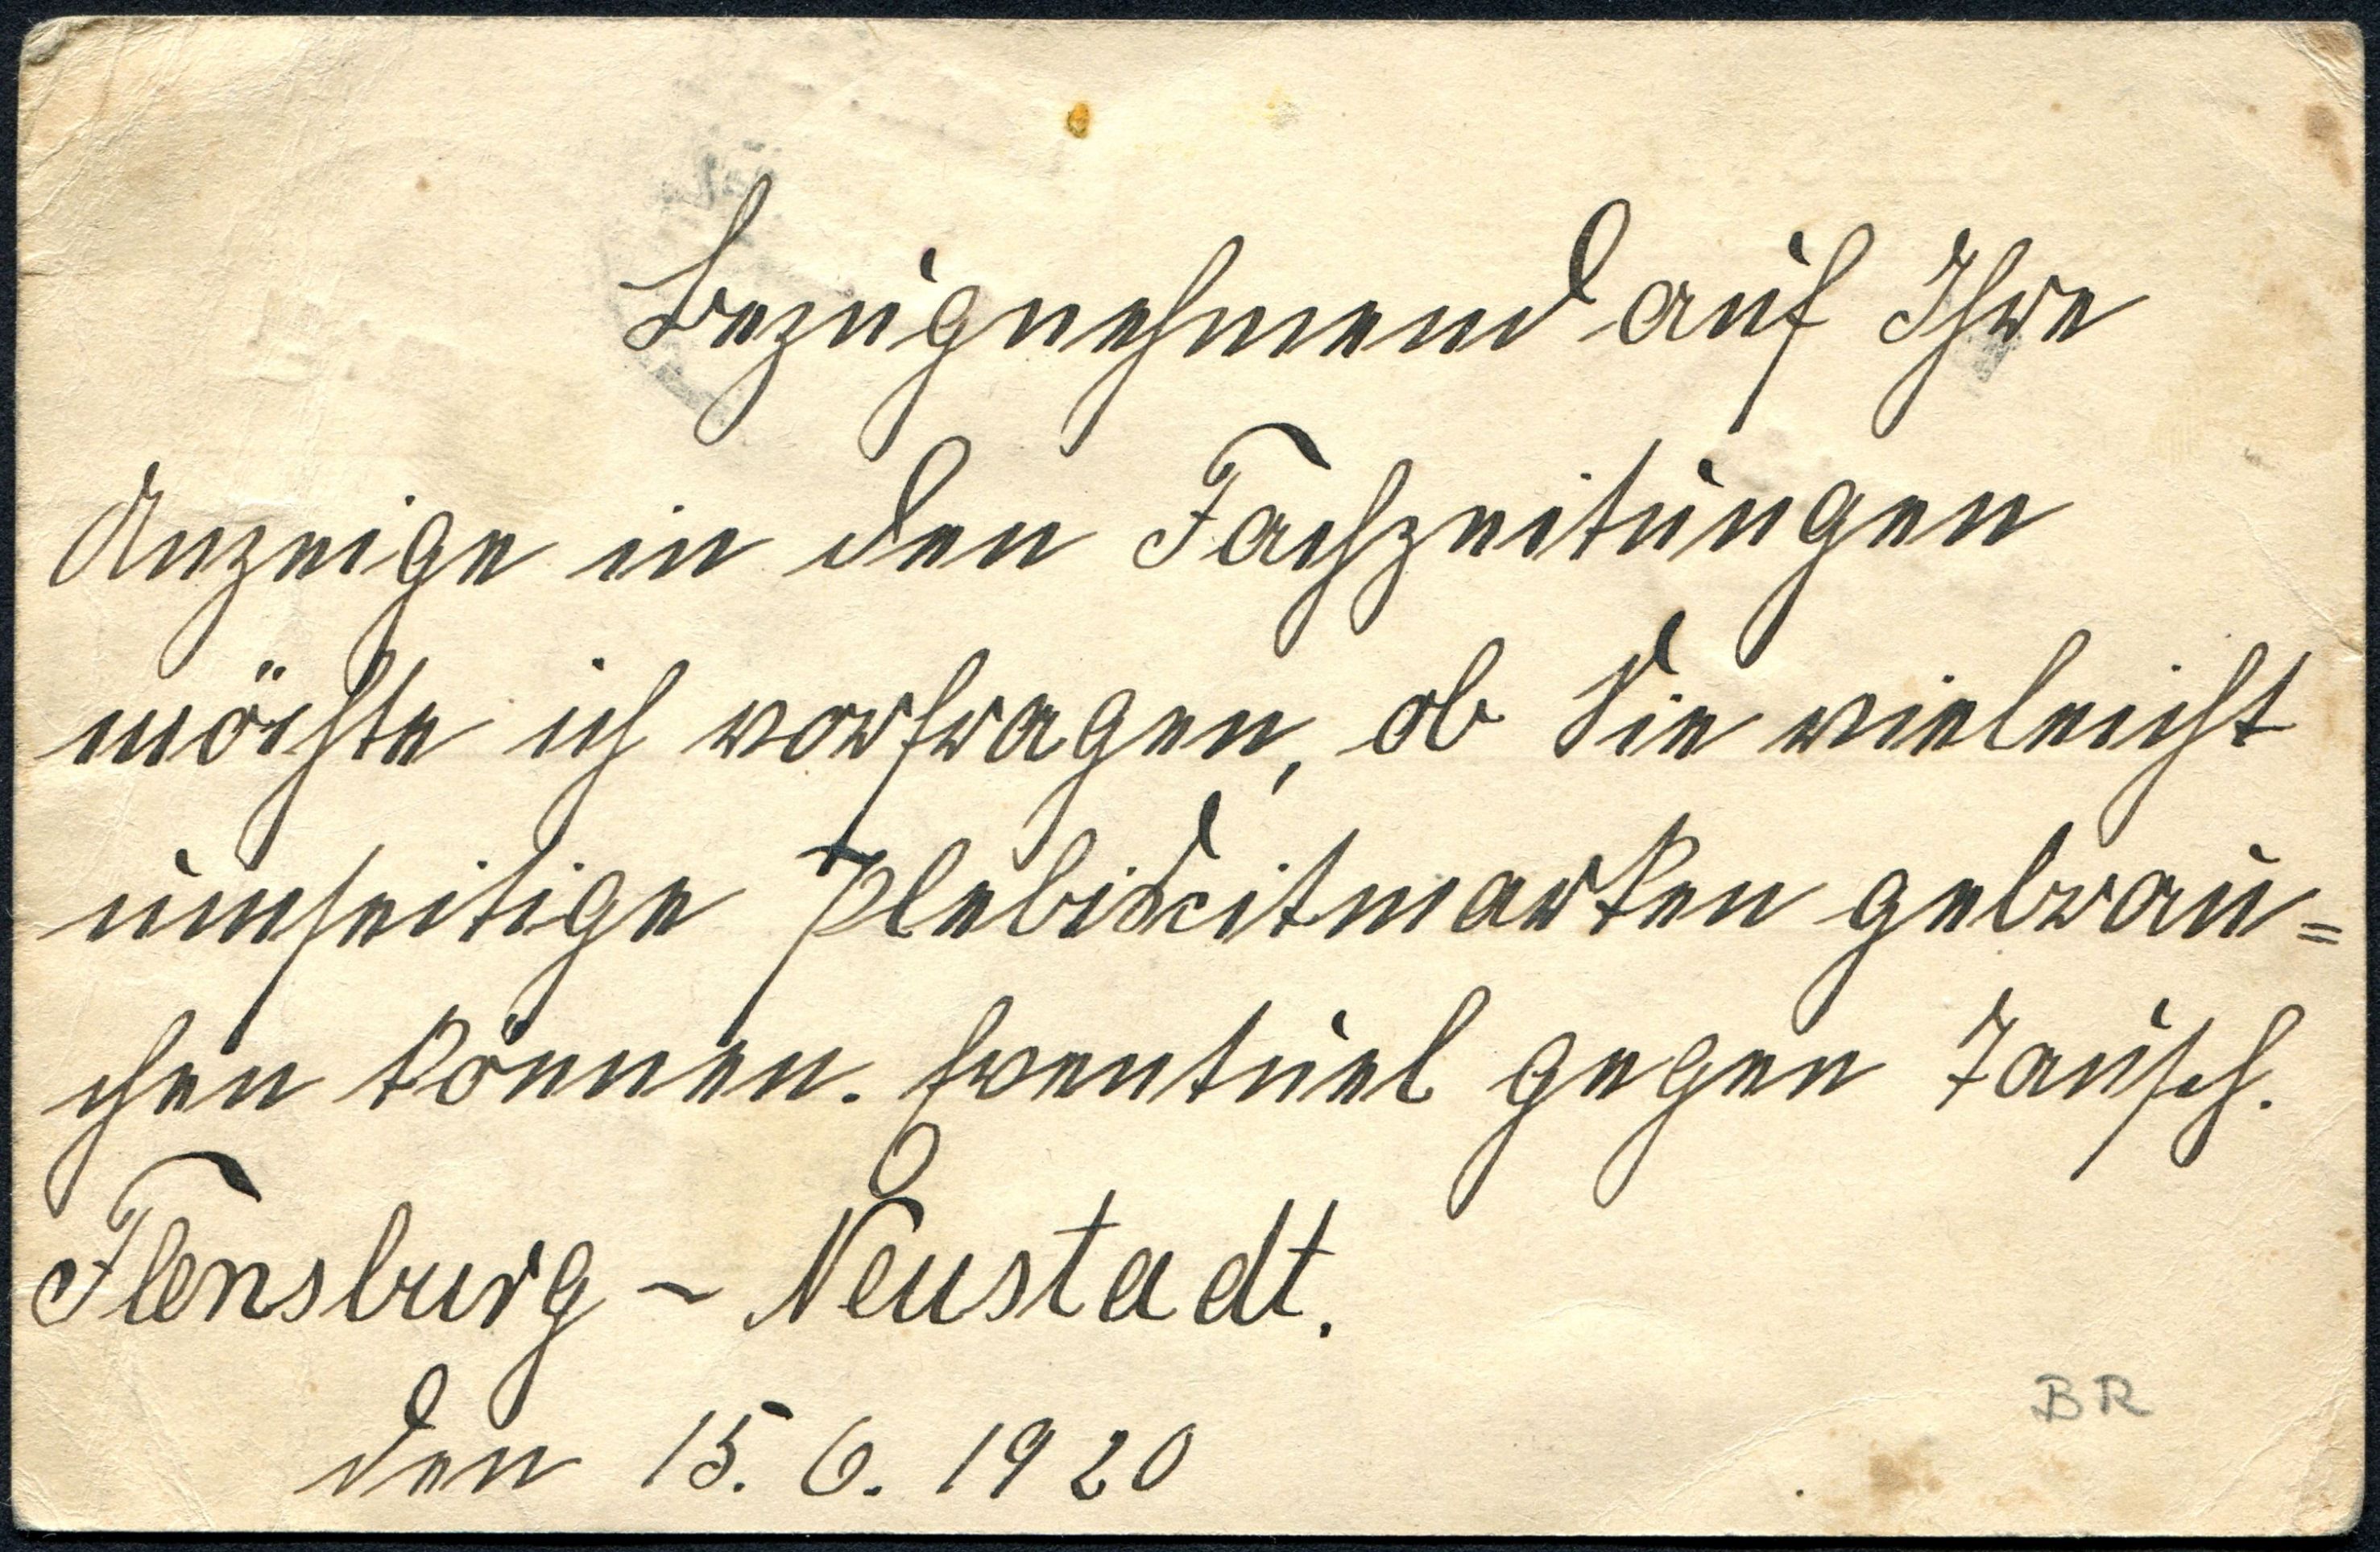 Bezugnehmend auf Ihre
Anzeige in den Fachzeitungen
möchte ich vorfragen, ob Sie vieleicht
umseitige Plebiscitmarken gebrau=
chen können. Eventuel gegen Tausch.
Flensburg - Neustadt.
den 15. 6. 1920
BR